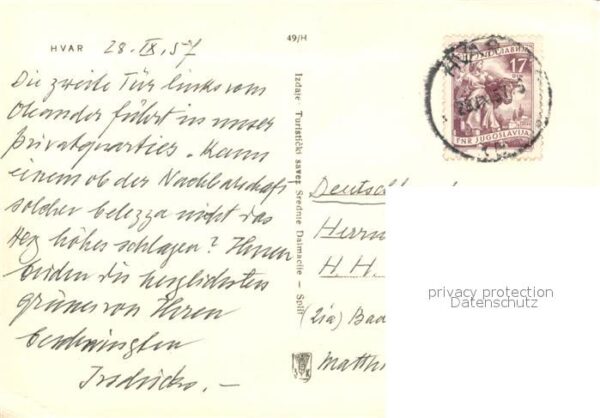 HVAR 28.IX.57
49/H
Die zweite Tür links vom
Oleander führt in unser
Privatquartier. Kann
einem ob der Nachbarschaft
solcher belezza nicht das
Herz höher schlagen? Ihnen
senden die herzlichsten
Grüsse von Ihren
Izdaje Turistički savez Srednje Dalmacije - Split
HVAR
17
FNR JUGOSLAVIJA
Deutschland
Herrn
H. H.
(21a) Bad
Matth
privacy protection
Datenschutz